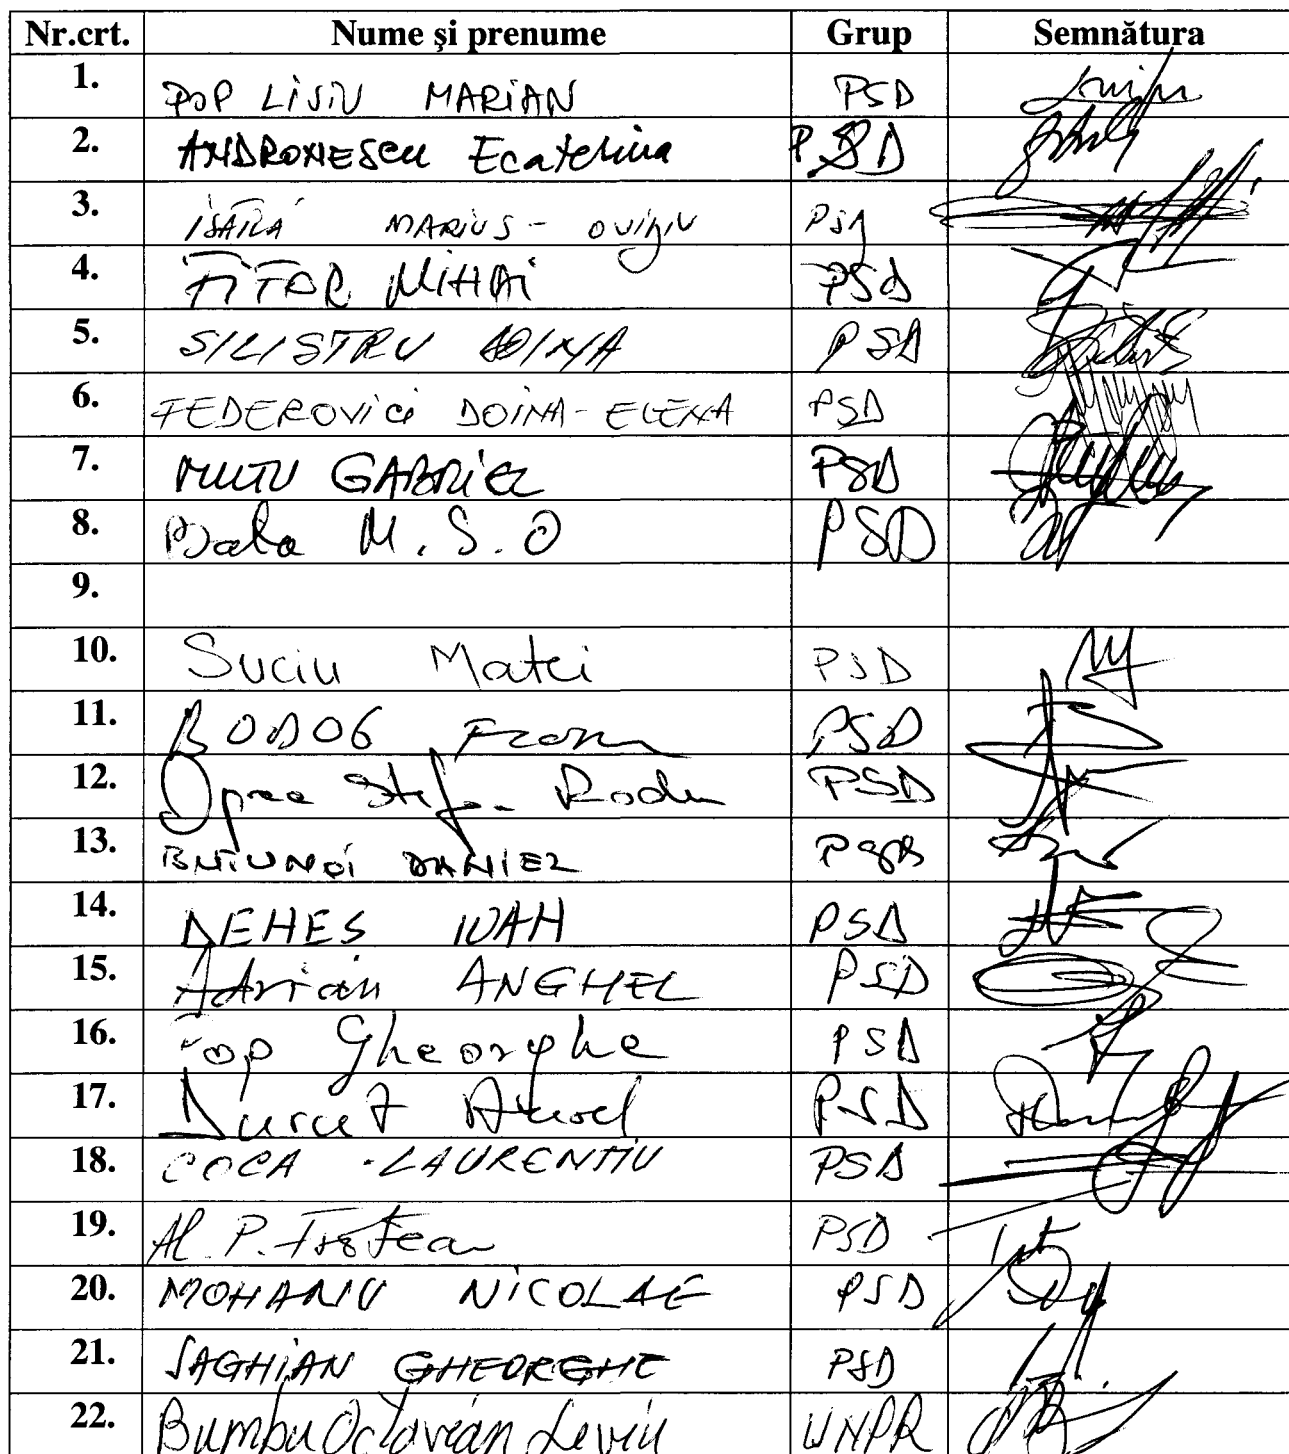 Nr.crt. Nume şi prenume Grup Semnătura
1. POP LIVIU MARIAN PSD
2. ANDRONESCU Ecaterina PSD
3. ISĂILĂ MARIUS - OVIDIU PSD
4. FIFOR MIHAI PSD
5. SILISTRU DOINA PSD
6. FEDEROVICI DOINA-ELENA PSD
7. MUTU GABRIEL PSD
8. M.S.O PSD
9.
10. Suciu Matei PSD
11. BODOG PSD
12. Oprea Ştefan Radu PSD
13. DANIEL
14. DENEŞ IOAN PSD
15. Adrian ANGHEL PSD
16. Pop Gheorghe PSD
17. PSD
18. COCA LAURENŢIU PSD
19. Al. P. PSD
20. MOHANU NICOLAE PSD
21. SAGHIAN GHEORGHE PSD
22. Bumbu Octavian Liviu UNPR